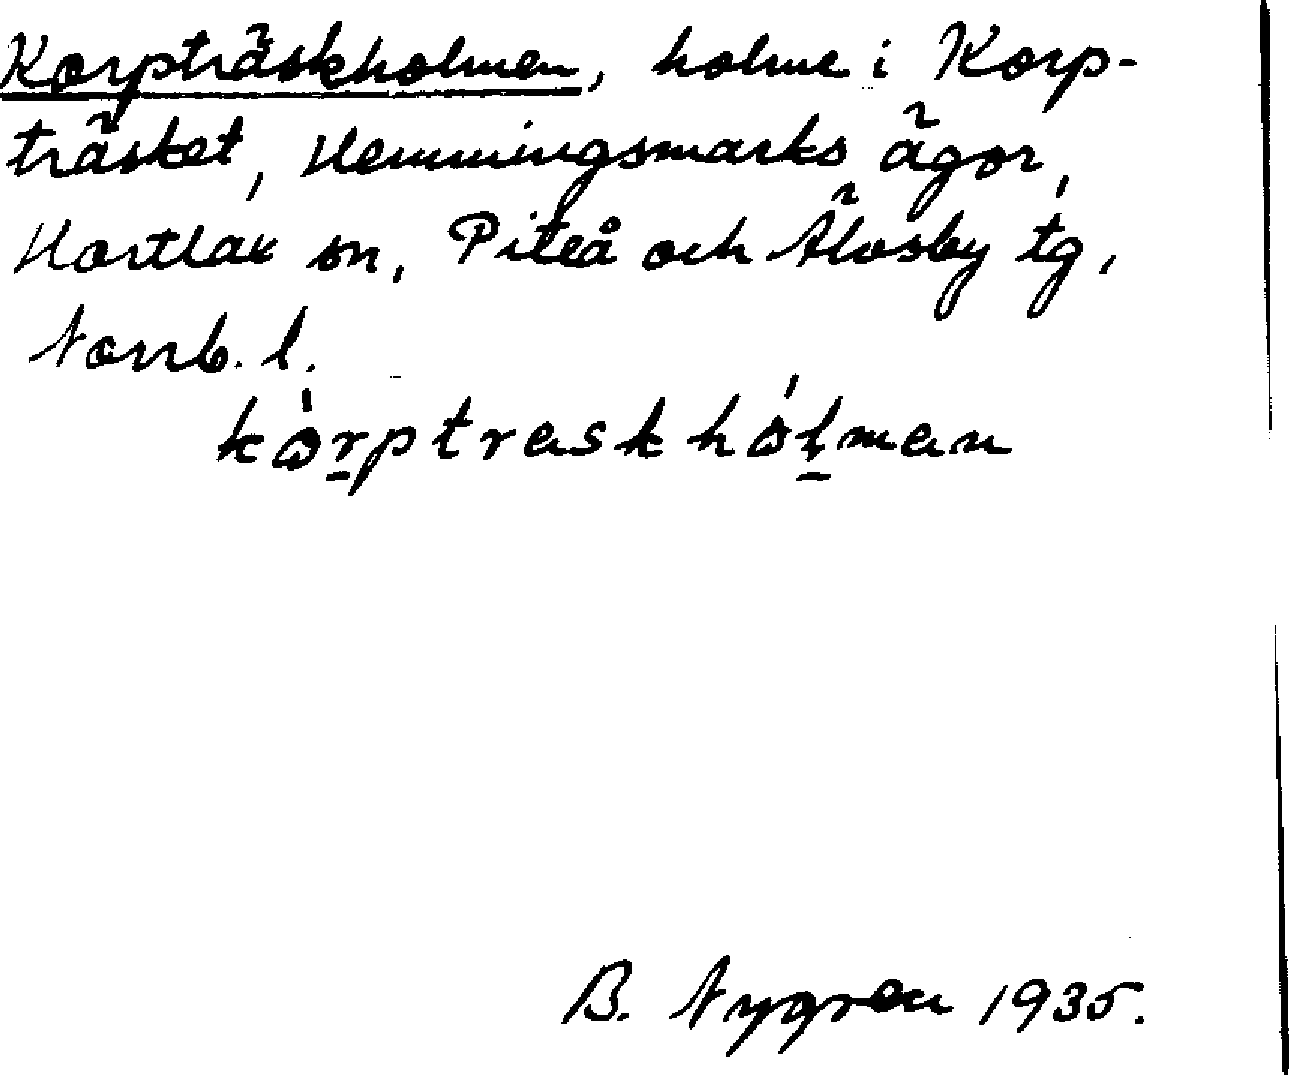 Korpträskholmen, holme i Korp-
träsket, Hemmingsmarks ägor,
Hortlax sn, Piteå och Älvsby tg,
Norrb. l.
kȯrptraskhȯlman
B. Nygren 1935.